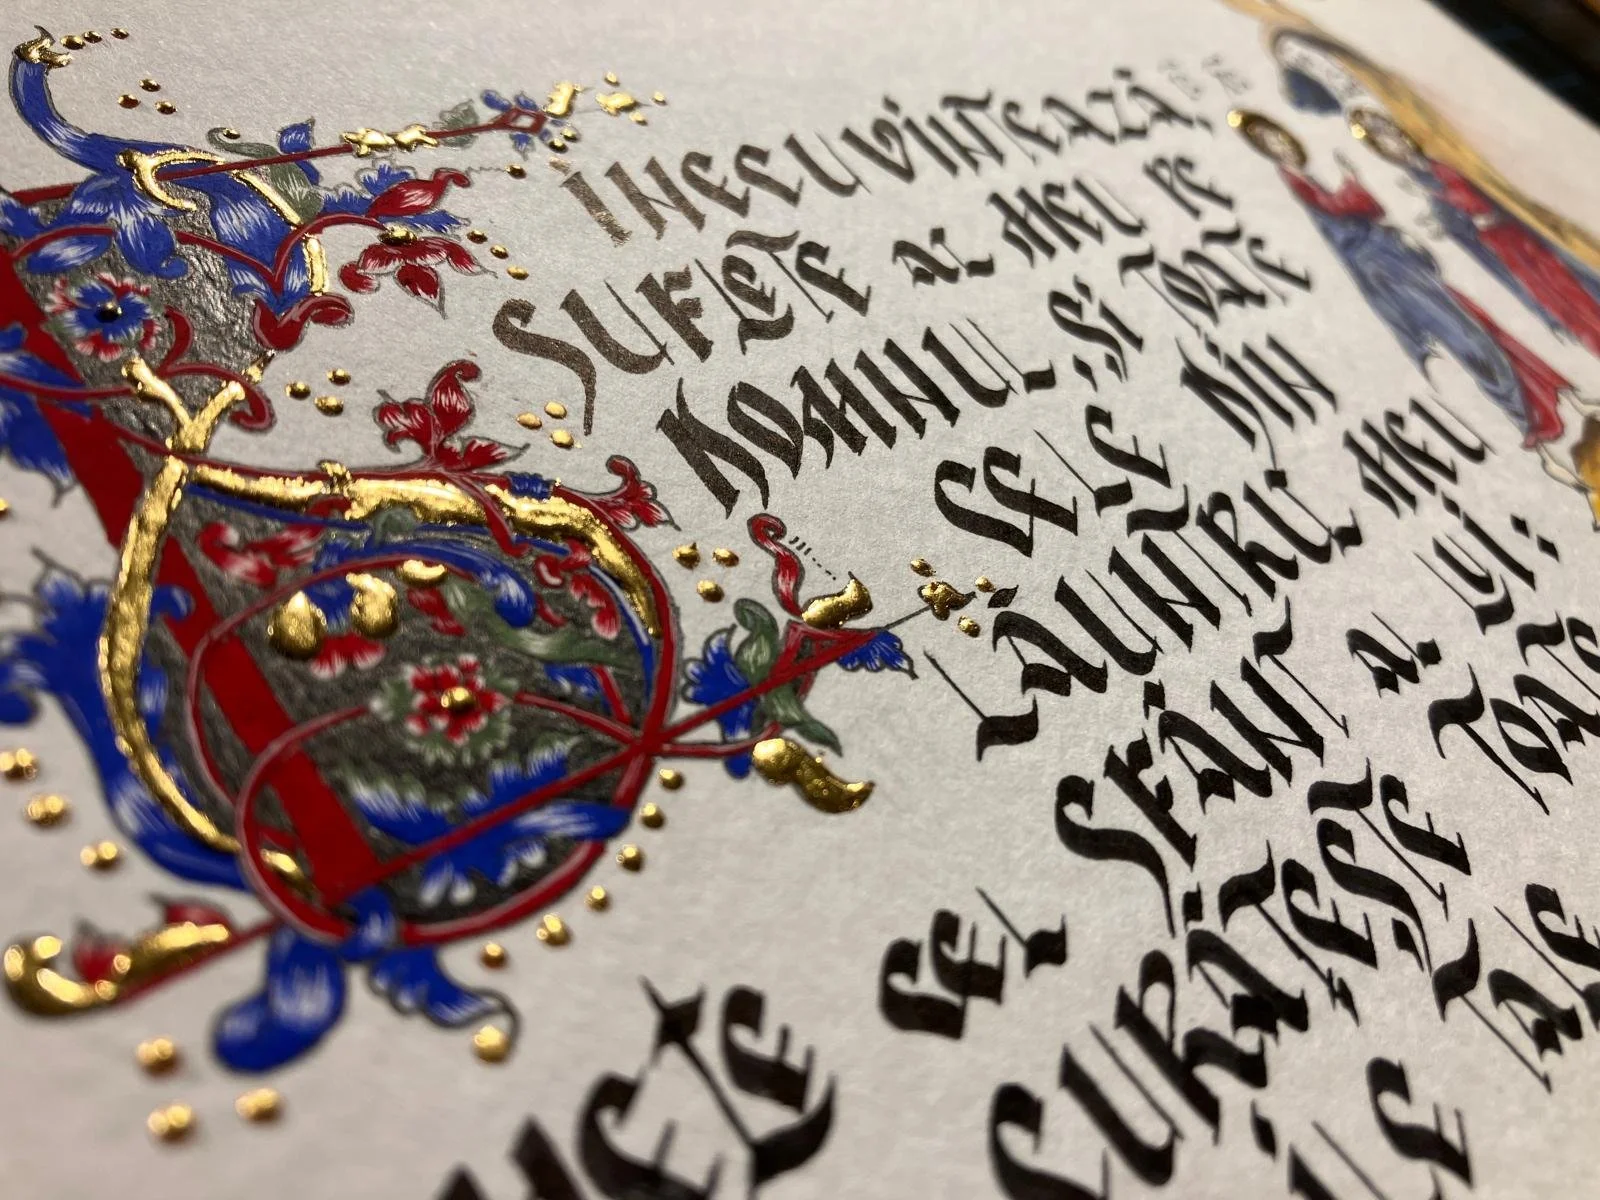 BINECUVINTEAZĂ,
SUFLETE AL MEU PE
DOMNUL ȘI TOATE
CELE DIN
LĂUNTRUL MEU
CEL SFÂNT AL LUI:
CURĂȚEȘTE TOATE